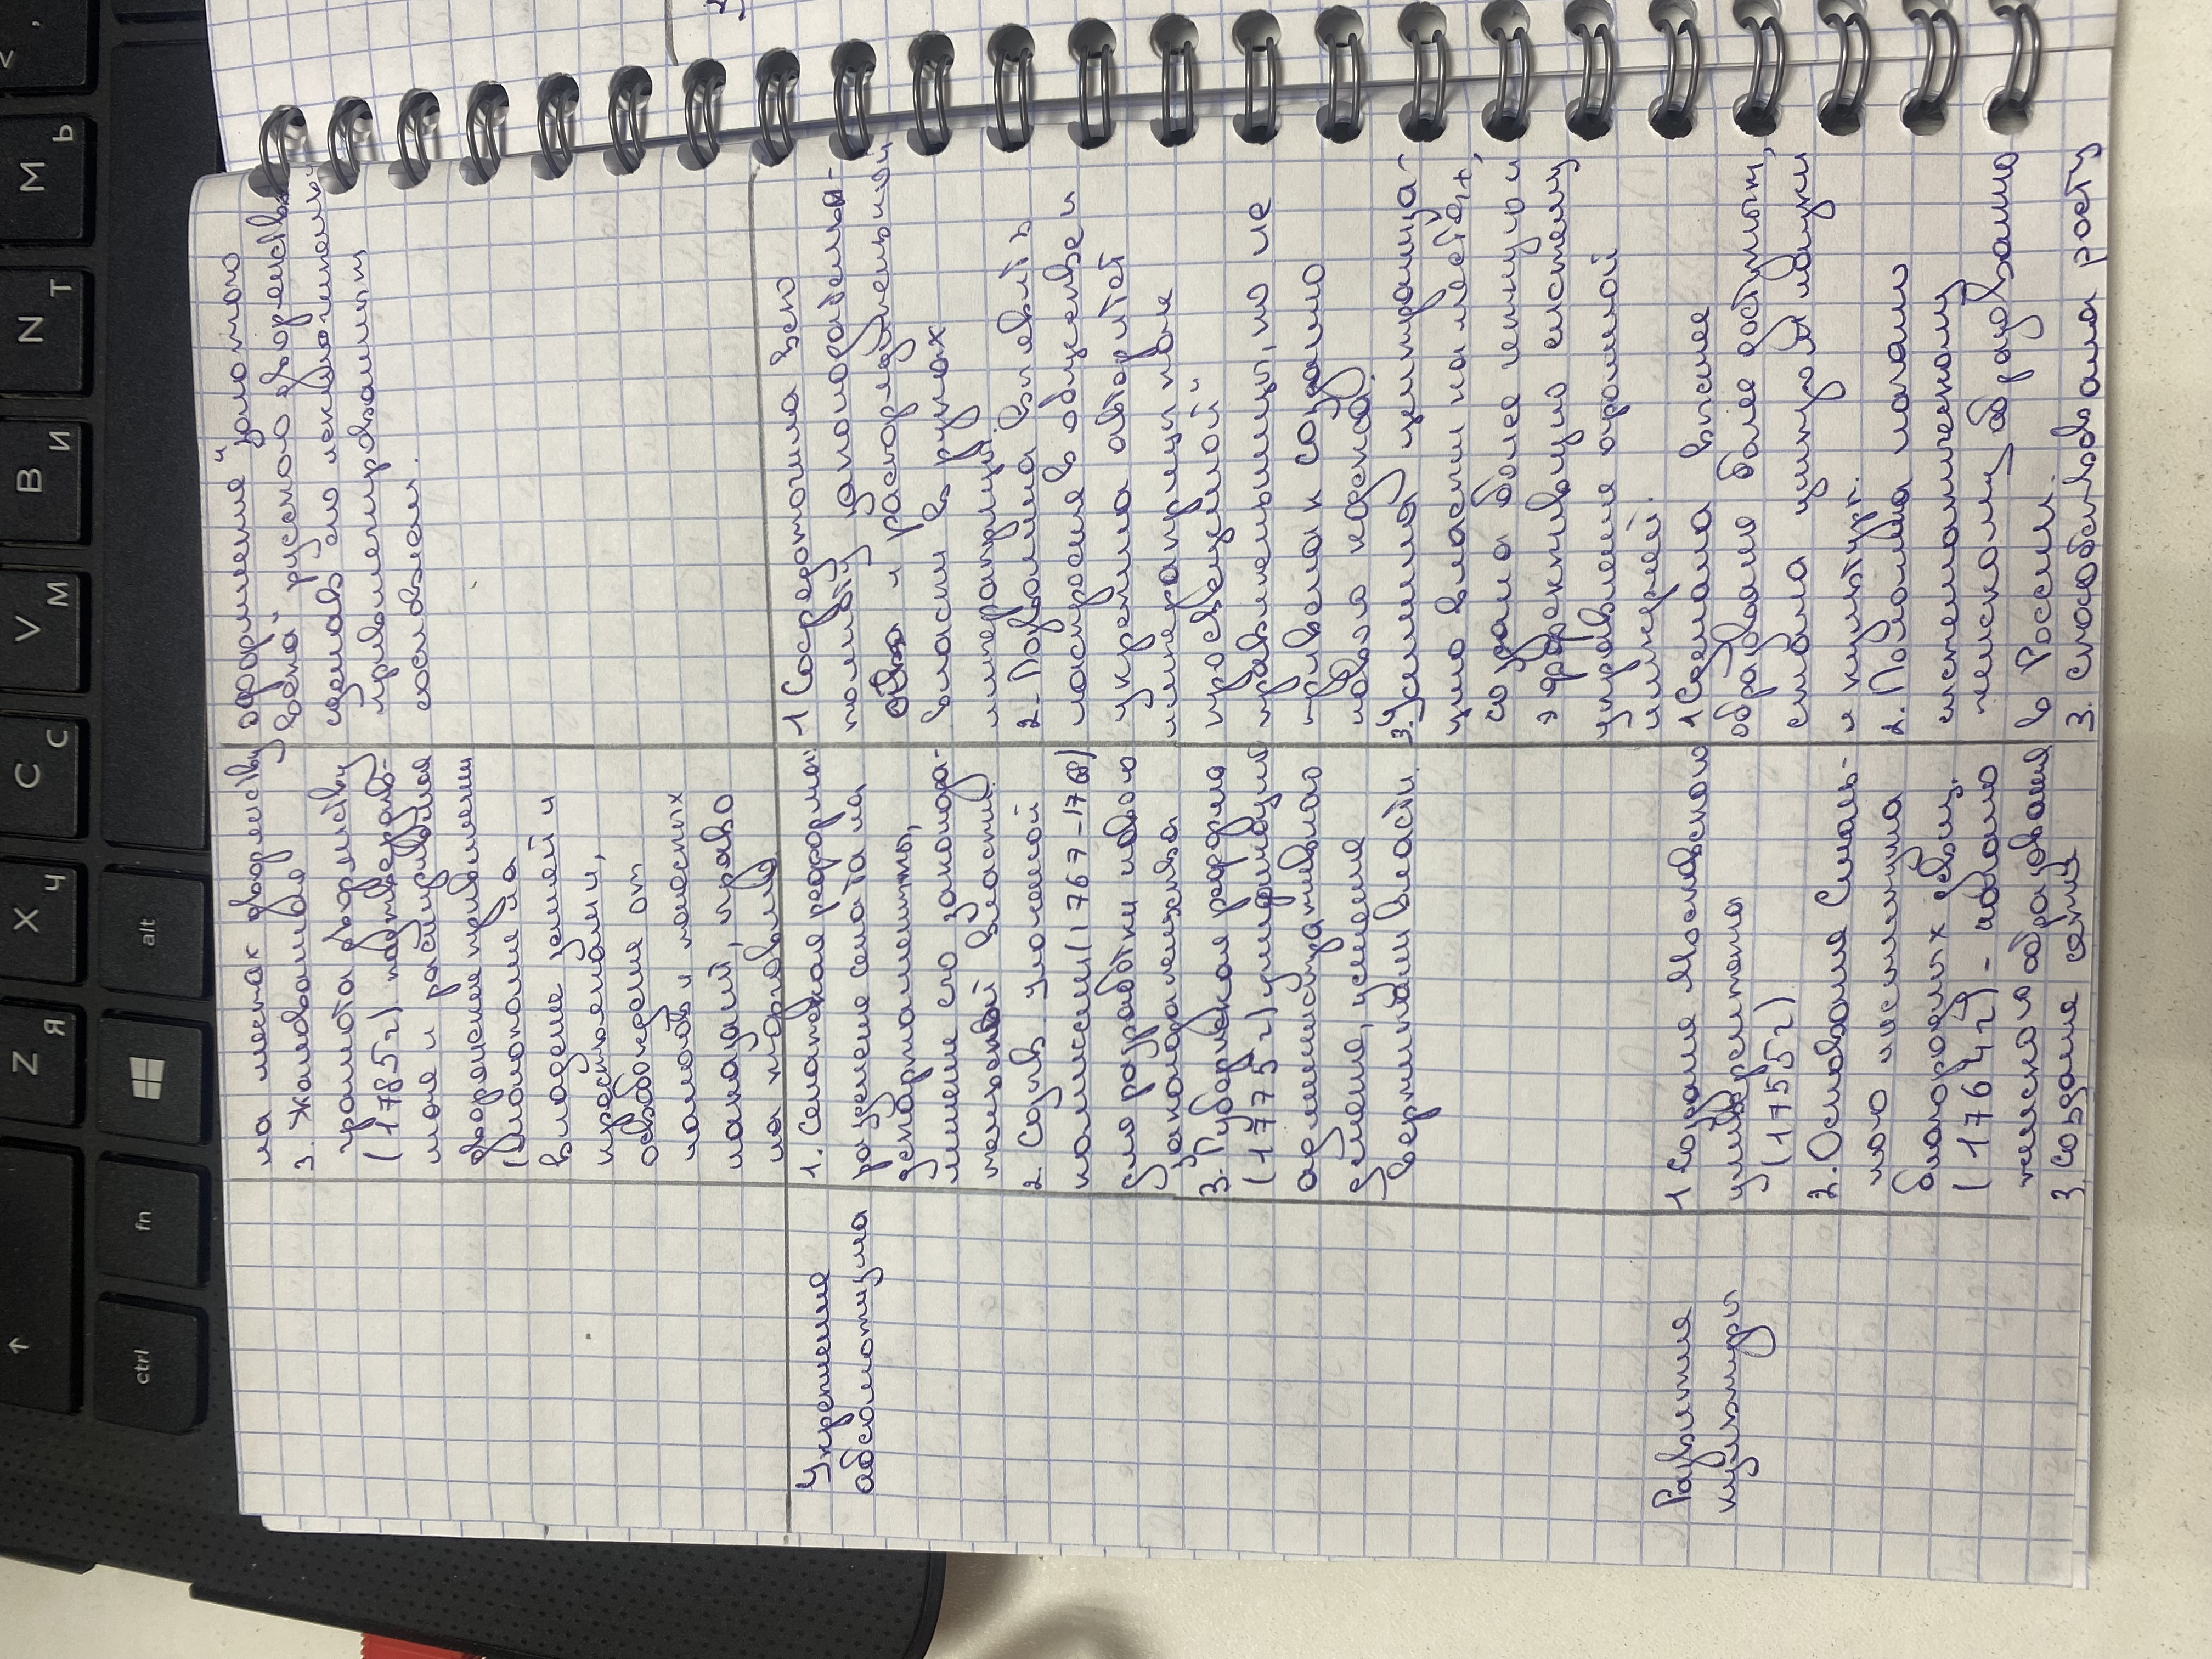 на менах дворянству
3. Жалованная
грамота дворянству
(1785г) подтверди-
лое и расширявшая
дворянские привилегии
(монополие на
владение землей и
крестьянами,
освобождение от
налогов и телесных
наказаний, право
на торговлю)
оформление "золотого
века" русского дворянства,
сделав его исключительно
привилегированным
сословием.
Укрепление
абсолютизма
1. Сенатская реформа:
разделение сената на
департаменты,
лишение его законода-
тельной власти
2. Созыв уложенной
комиссии (1767-1768)
для разработки нового
законодательства
3. Губернская реформа
(1775г) унификация
административного
деления, усиление
вертикали власти.
1 Сосредоточила всю
полноту законодатель-
и распорядительной
власти в руках
императрицы.
2. Позволила выявить
настроения в обществе и
укрепила авторитет
императрицы как
"просвещенной
правительницы", но не
привела к созданию
нового кодекса.
3. Усилила централиза-
цию власти на местах,
создала более четкую и
эффективную систему
управления огромной
империей.
Развитие
культуры
1 Создание Московского
университета
(1755г)
2. Основание Смоль-
ного института
благородных девиц
(1764г) - начало
женского образования
3. Создание сети
1 Сделала высшее
образование более доступным,
стала центром науки
и культуры.
2. Положила начало
систематическому
женскому образованию
в России.
3. Способствовала росту
ctrl
fn
alt
Z Я
X Ч
C С
V М
B И
N Т
M Ь